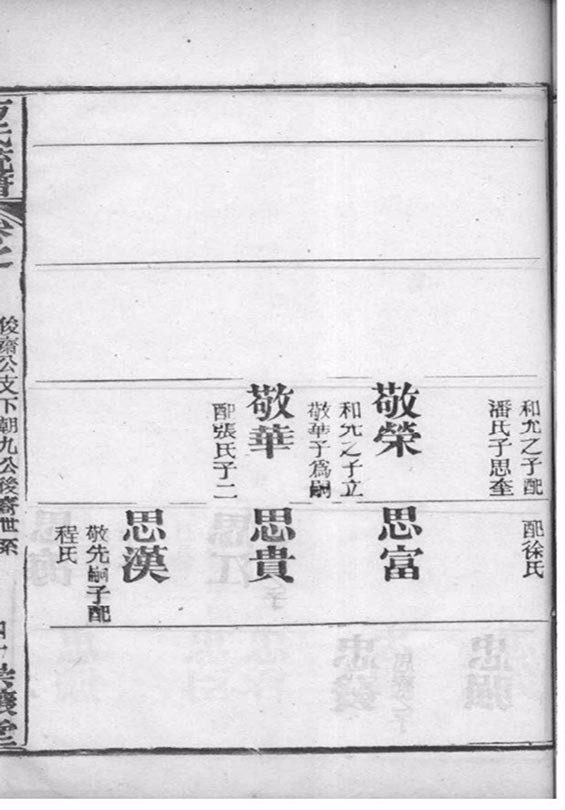 和尤之子配
潘氏子思奎
敬榮
和尤之子立
敬華子爲嗣
敬華
配張氏子二
配徐氏
思富
思貴
思漢
敬先嗣子配
程氏
氏統譜
俊齋公支下朝九公後寄世系